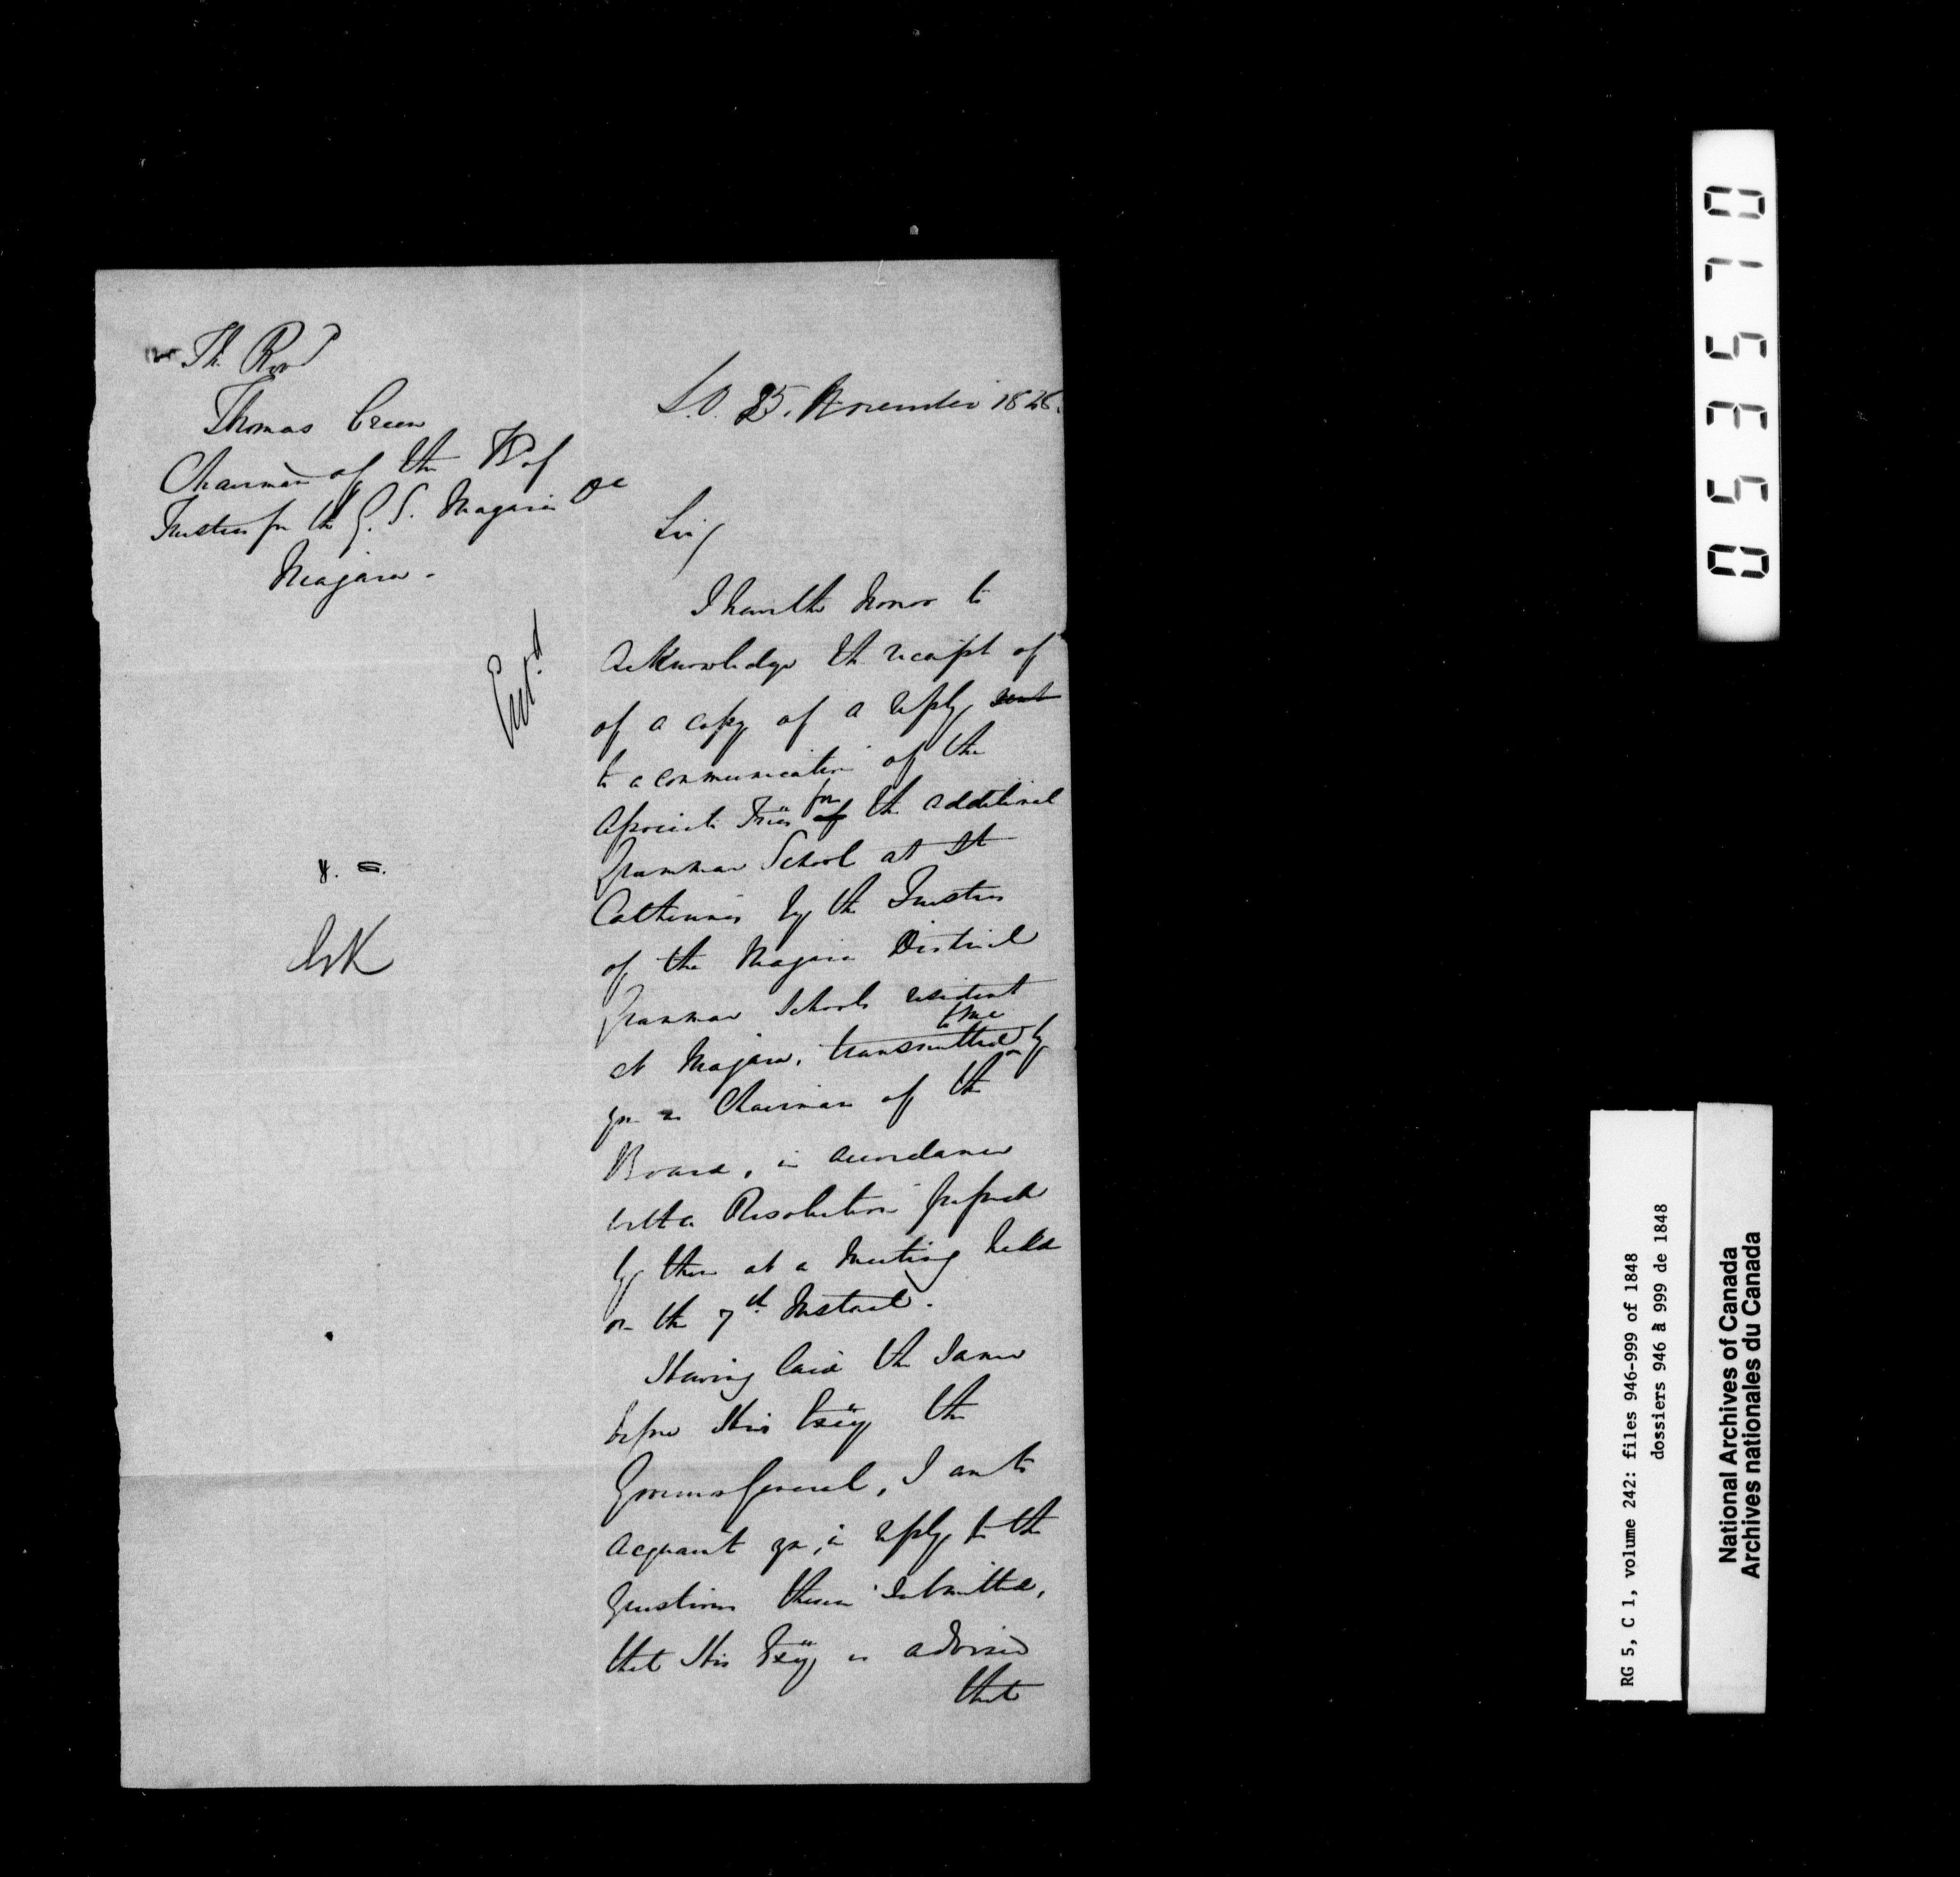 The Revd
Thomas Creen
Chairman of the Bd of
Trustees for the G. S. Niagara Dt
Niagara.
S.O. 25. November 1848.
Sir/
Entd
I have the honor to
acknowledge the receipt of
of a copy of a reply sent
to a communication of the
Associate Trees for of the additional
Grammar School at St
Catherines by the Trustees
of the Niagara District
Grammar Schools resident
at Niagara, transmitted to me by
you as Chairman of the
Board, in accordance
with a Resolution passed
by them at a Meeting held
on the 7th Instant.
Having laid the same
before His Excy the
Governor General, I am to
acquaint you, in reply to the
Questions therein submitted,
that His Excy is advised
that
053570
RG 5, C 1, volume 242: files 946-999 of 1848
dossiers 946 à 999 de 1848
National Archives of Canada
Archives nationales du Canada